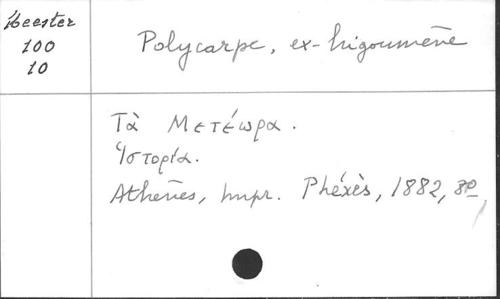 Heester
100
10
Polycarpe, ex-higoumène
Τὰ Μετέωρα.
Ἱστορία.
Athènes, Impr. Phéxès, 1882, 8º,